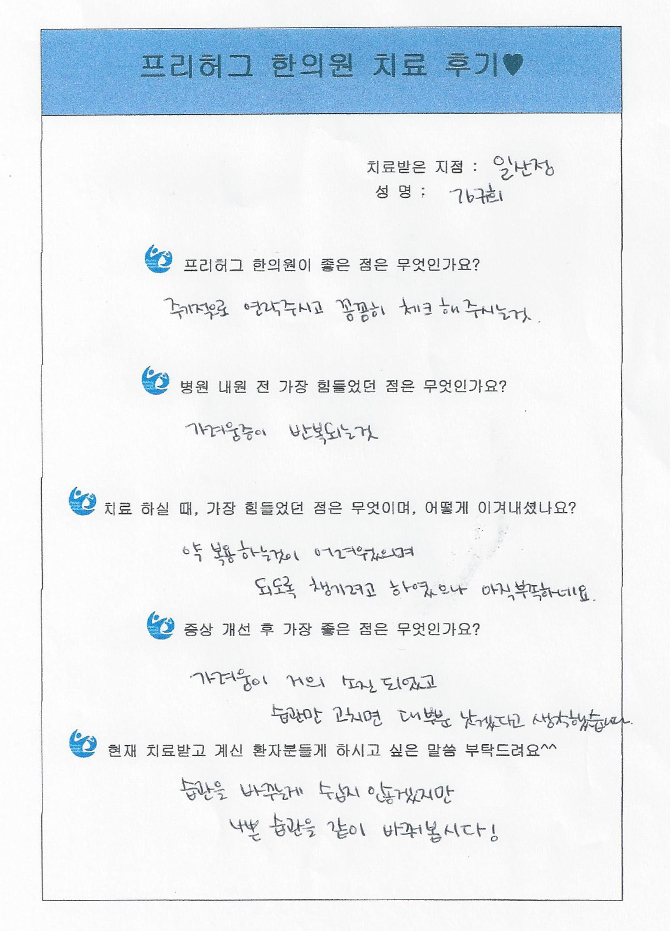 프리허그 한의원 치료 후기♥
치료받은 지점 : 일산점
성 명 ;
프리허그 한의원이 좋은 점은 무엇인가요?
주기적으로 연락주시고 꼼꼼히 체크해주시는것.
병원 내원 전 가장 힘들었던 점은 무엇인가요?
가려움증이 반복되는것
치료 하실 때, 가장 힘들었던 점은 무엇이며, 어떻게 이겨내셨나요?
약 복용하는것이 어려웠으며
되도록 챙기려고 하였으나 아직부족하네요.
증상 개선 후 가장 좋은 점은 무엇인가요?
가려움이 거의 되었고
습관만 고치면 대부분 낫겠다고 생각했습니다.
현재 치료받고 계신 환자분들게 하시고 싶은 말씀 부탁드려요^^
습관을 바꾸는게 쉽지 않겠지만
나쁜 습관을 같이 바꿔봅시다!